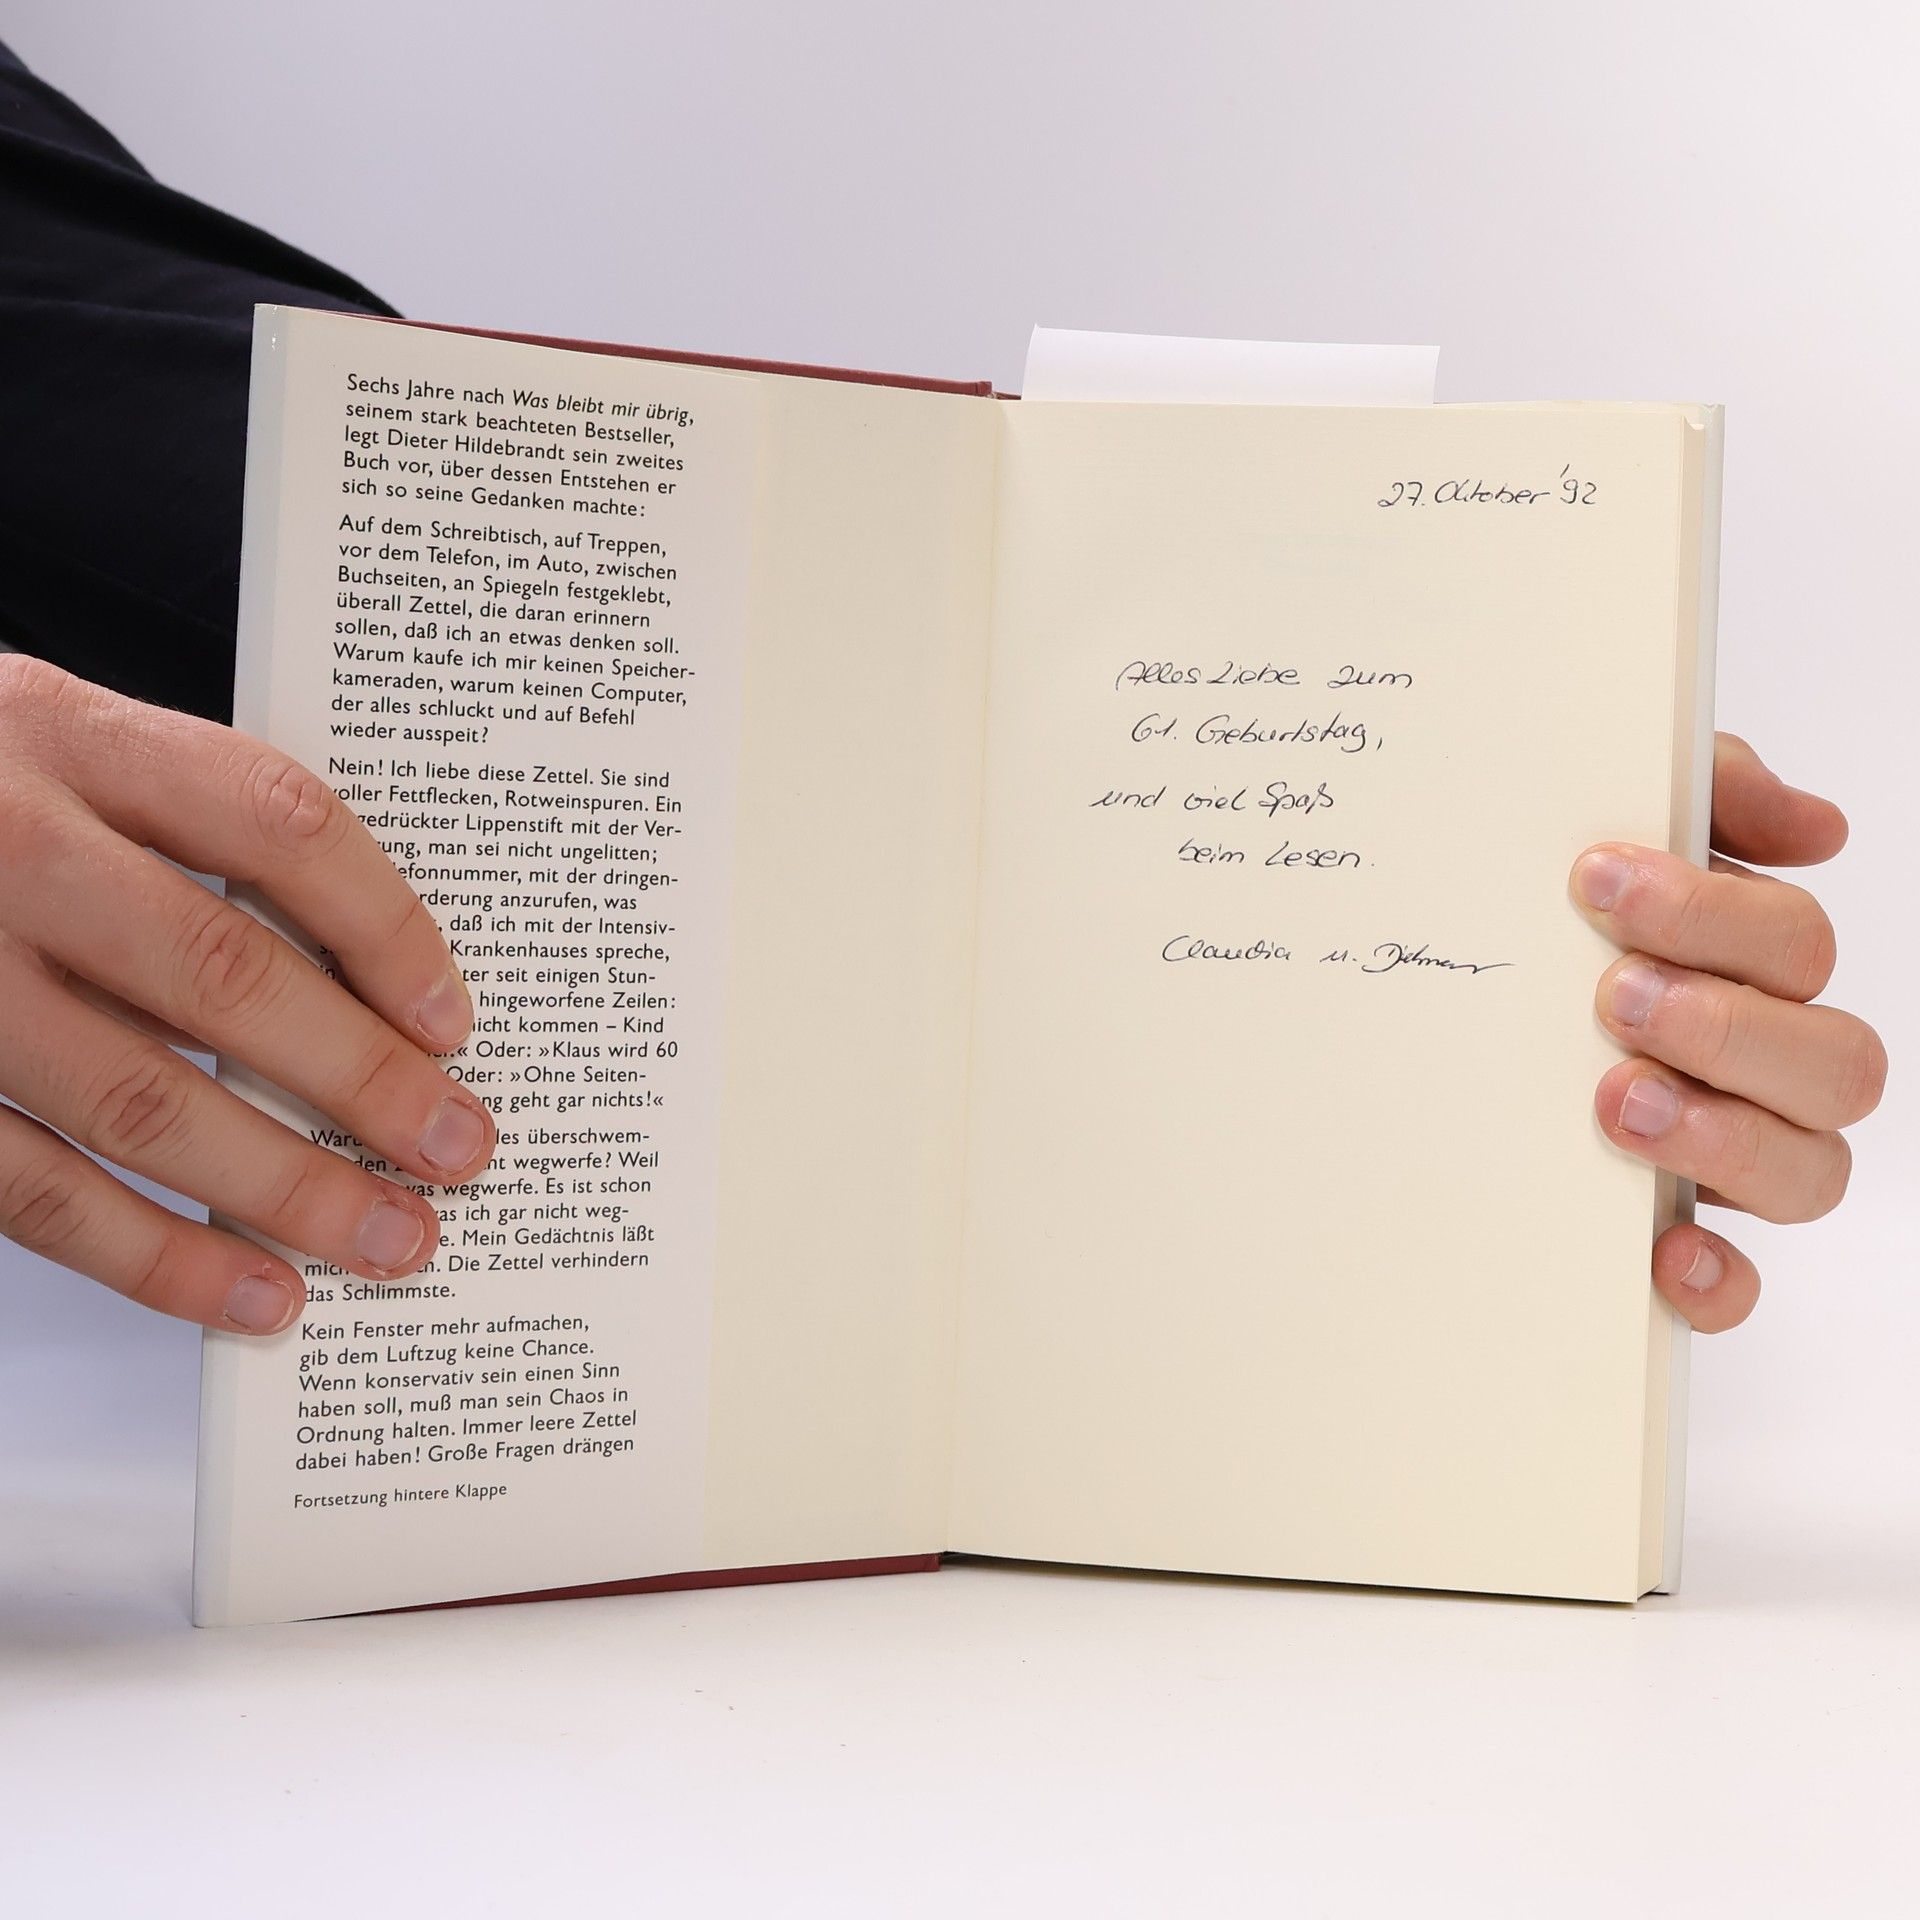 Sechs Jahre nach Was bleibt mir übrig,
seinem stark beachteten Bestseller,
legt Dieter Hildebrandt sein zweites
Buch vor, über dessen Entstehen er
sich so seine Gedanken machte:
Auf dem Schreibtisch, auf Treppen,
vor dem Telefon, im Auto, zwischen
Buchseiten, an Spiegeln festgeklebt,
überall Zettel, die daran erinnern
sollen, daß ich an etwas denken soll.
Warum kaufe ich mir keinen Speicher-
kameraden, warum keinen Computer,
der alles schluckt und auf Befehl
wieder ausspeit?
Nein! Ich liebe diese Zettel. Sie sind
voller Fettflecken, Rotweinspuren. Ein
gedrückter Lippenstift mit der Ver-
rung, man sei nicht ungelitten;
efonnummer, mit der dringen-
rderung anzurufen, was
, daß ich mit der Intensiv-
Krankenhauses spreche,
ter seit einigen Stun-
hingeworfene Zeilen:
nicht kommen – Kind
« Oder: »Klaus wird 60
Oder: »Ohne Seiten-
ng geht gar nichts!«
Waru les überschwem-
den nt wegwerfe? Weil
was wegwerfe. Es ist schon
was ich gar nicht weg-
e. Mein Gedächtnis läßt
mich n. Die Zettel verhindern
das Schlimmste.
Kein Fenster mehr aufmachen,
gib dem Luftzug keine Chance.
Wenn konservativ sein einen Sinn
haben soll, muß man sein Chaos in
Ordnung halten. Immer leere Zettel
dabei haben! Große Fragen drängen
Fortsetzung hintere Klappe
27. Oktober '92
Alles Liebe zum
61. Geburtstag,
und viel Spaß
beim Lesen.
Claudia u. Dietmar